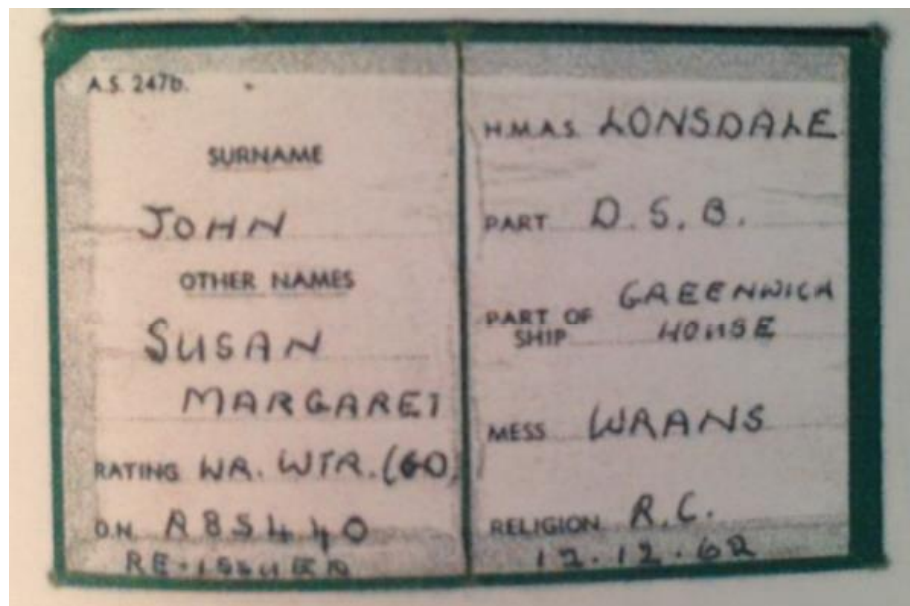 A.S. 247b.
SURNAME
JOHN
OTHER NAMES
SUSAN
MARGARET
RATING WR. WTR. (GO)
O.N. R85440
RE-ISSUED
H.M.A.S. LONSDALE
PART D.S.B.
PART OF SHIP GREENWICH
HOUSE
MESS WRANS
RELIGION R.C.
12.12.62